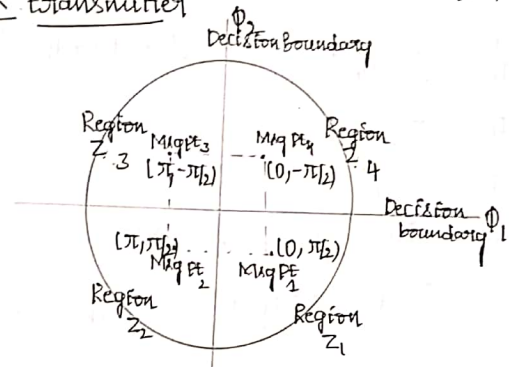 transmitter
Φ2
Decision boundary
Region
Z3
Msg pt3
(π,-π/2)
Msg pt4
(0,-π/2)
Region
Z4
Decision
boundary
Φ1
(π,π/2)
Msg pt
2
.(0,π/2)
Msg pt
1
Region
Z2
Region
Z1